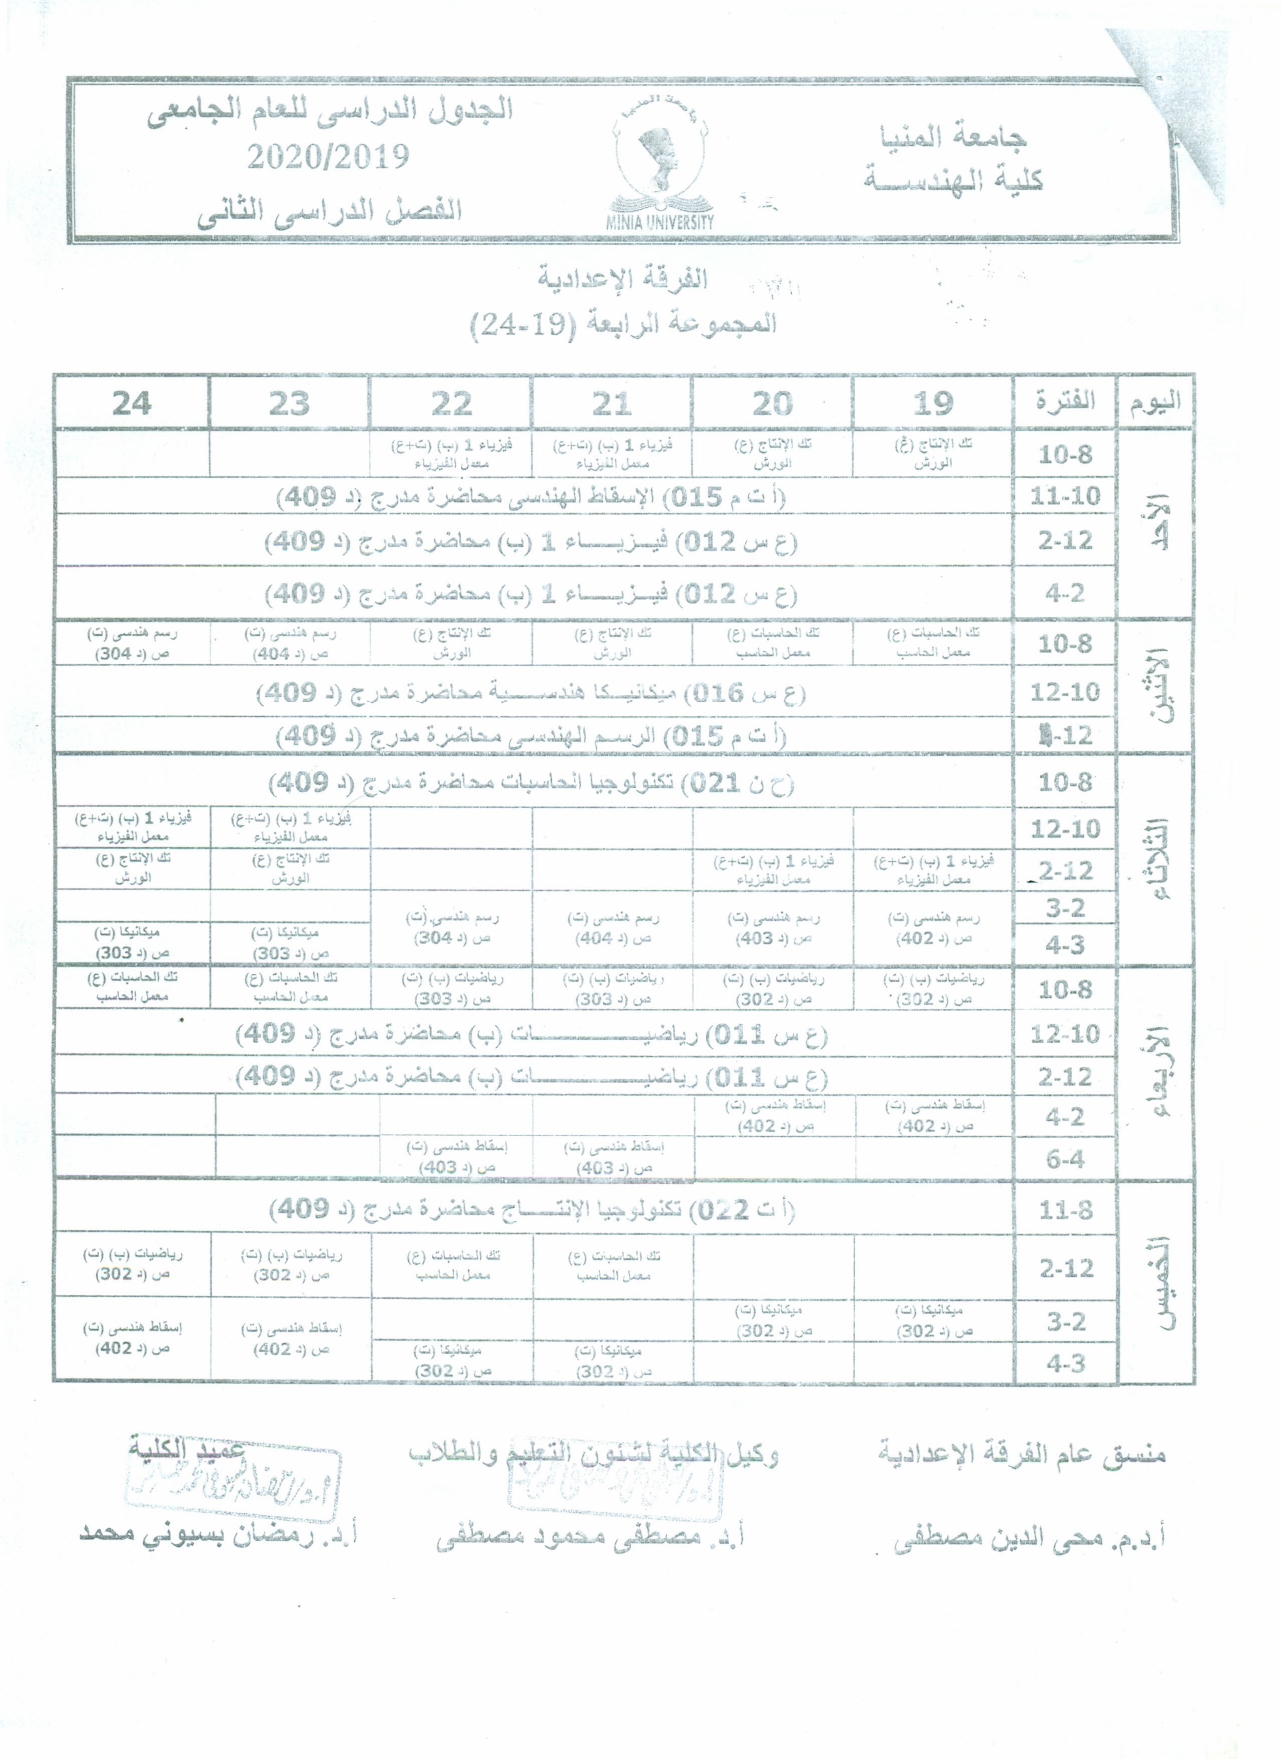 جامعة المنيا
كلية الهندســـة
جامعة المنيا
MINIA UNIVERSITY
الجدول الدراسى للعام الجامعى
2020/2019
الفصل الدراسى الثانى
الفرقة الإعدادية
المجموعة الرابعة (19-24)
اليوم الفترة 19 20 21 22 23 24
الأحد
10-8
تك الإنتاج (ع) تك الإنتاج (ع) فيزياء 1 (ب) (ت+ع) فيزياء 1 (ب) (ت+ع)
الورش الورش معمل الفيزياء معمل الفيزياء
11-10 (أ ت م 015) الإسقاط الهندسى محاضرة مدرج (د 409)
2-12 (ع س 012) فيـزيـــاء 1 (ب) محاضرة مدرج (د 409)
4-2 (ع س 012) فيـزيـــاء 1 (ب) محاضرة مدرج (د 409)
الاثنين
10-8
تك الحاسبات (ع) تك الحاسبات (ع) تك الإنتاج (ع) تك الإنتاج (ع) رسم هندسى (ت) رسم هندسى (ت)
معمل الحاسب معمل الحاسب الورش الورش ص (د 404) ص (د 304)
12-10 (ع س 016) ميكانيـكا هندســـية محاضرة مدرج (د 409)
-12 (أ ت م 015) الرسم الهندسى محاضرة مدرج (د 409)
الثلاثاء
10-8 (ح ن 021) تكنولوجيا الحاسبات محاضرة مدرج (د 409)
12-10
فيزياء 1 (ب) (ت+ع) فيزياء 1 (ب) (ت+ع)
معمل الفيزياء معمل الفيزياء
2-12
فيزياء 1 (ب) (ت+ع) فيزياء 1 (ب) (ت+ع) تك الإنتاج (ع) تك الإنتاج (ع)
معمل الفيزياء معمل الفيزياء الورش الورش
3-2
رسم هندسى (ت) رسم هندسى (ت) رسم هندسى (ت) رسم هندسى (ت)
ص (د 402) ص (د 403) ص (د 404) ص (د 304)
4-3
ميكانيكا (ت) ميكانيكا (ت)
ص (د 303) ص (د 303)
الأربعاء
10-8
رياضيات (ب) (ت) رياضيات (ب) (ت) رياضيات (ب) (ت) رياضيات (ب) (ت) تك الحاسبات (ع) تك الحاسبات (ع)
ص (د 302) ص (د 302) ص (د 303) ص (د 303) معمل الحاسب معمل الحاسب
12-10 (ع س 011) رياضيـــــــــات (ب) محاضرة مدرج (د 409)
2-12 (ع س 011) رياضيـــــــــات (ب) محاضرة مدرج (د 409)
4-2
إسقاط هندسى (ت) إسقاط هندسى (ت)
ص (د 402) ص (د 402)
6-4
إسقاط هندسى (ت) إسقاط هندسى (ت)
ص (د 403) ص (د 403)
الخميس
11-8 (أ ت 022) تكنولوجيا الإنتـــاج محاضرة مدرج (د 409)
2-12
تك الحاسبات (ع) تك الحاسبات (ع) رياضيات (ب) (ت) رياضيات (ب) (ت)
معمل الحاسب معمل الحاسب ص (د 302) ص (د 302)
3-2
ميكانيكا (ت) ميكانيكا (ت) إسقاط هندسى (ت) إسقاط هندسى (ت)
ص (د 302) ص (د 302) ص (د 402) ص (د 402)
4-3
ميكانيكا (ت) ميكانيكا (ت)
ص (د 302) ص (د 302)
منسق عام الفرقة الإعدادية وكيل الكلية لشئون التعليم والطلاب عميد الكلية
أ.د.م. محى الدين مصطفى أ.د. مصطفى محمود مصطفى أ.د. رمضان بسيوني محمد